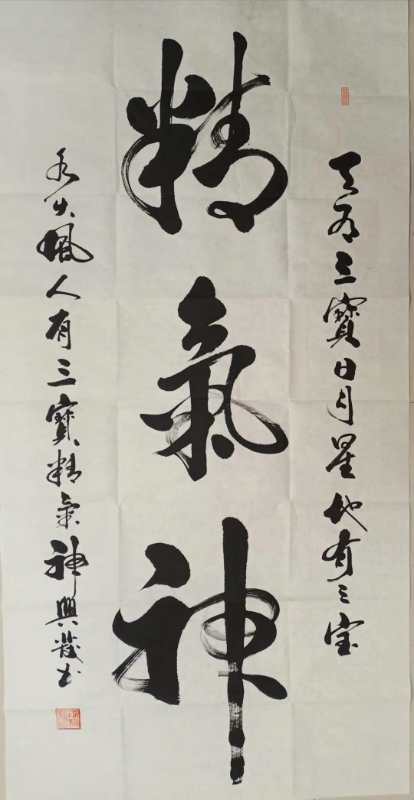 天有三寶日月星地有三宝
精氣神
水火風人有三寳精氣神興發书